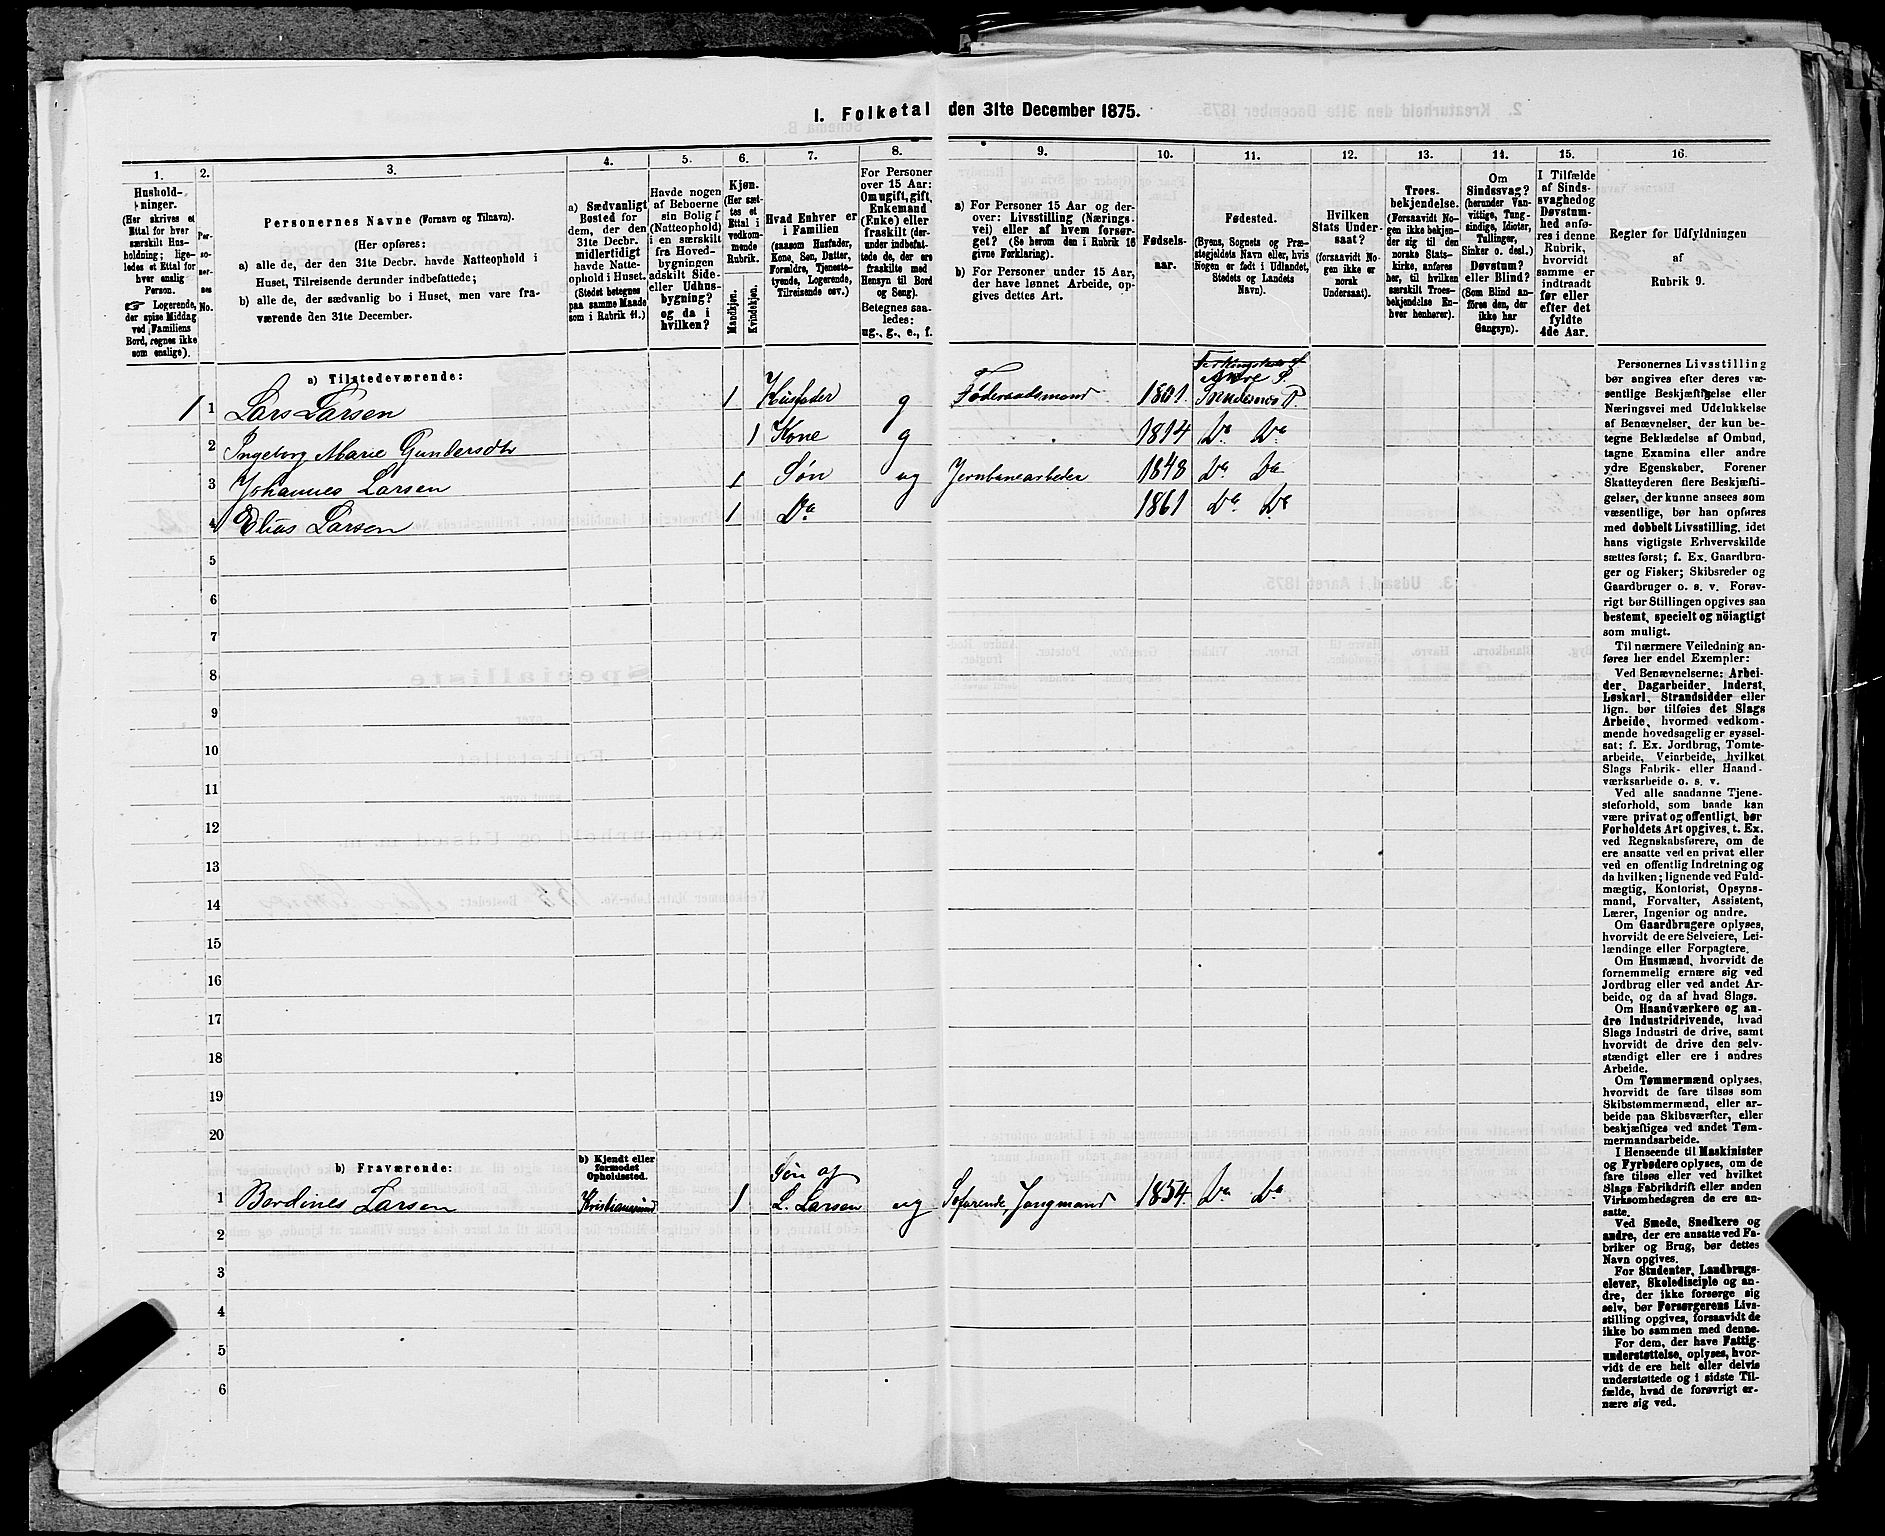 I. Folketal den 31te December 1875.
1. 2. 3. 4. 5. 6. 7. 8. 9. 10. 11. 12. 13. 14. 15. 16.
Hushold-
ninger.
(Her skrives et
Ettal for hver
særskilt Hus-
holdning; lige-
ledes et Ettal for
hver enslig
Person.
☞ Logerende,
der spise Middag
ved Familiens
Bord, regnes ikke
som enslige).
Per-
so-
ner-
nes
No.
Personernes Navne (Fornavn og Tilnavn).
(Her opføres:
a) alle de, der den 31te Decbr. havde Natteophold i
Huset, Tilreisende derunder indbefattede;
b) alle de, der sædvanlig bo i Huset, men vare fra-
værende den 31te December.
a) Sædvanligt
Bosted for
dem, der den
31te Decbr.
midlertidigt
havde Natte-
ophold i Huset.
(Stedet betegnes
paa samme Maade
som i Rubrik 11.)
Havde nogen
af Beboerne
sin Bolig
(Natteophold)
i en særskilt
fra Hoved-
bygningen
adskilt Side-
eller Udhus-
bygning?
og da i
hvilken?
Kjøn.
(Her sæt-
tes et
Ettal i
vedkom-
mende
Rubrik.
Mandkjøn.
Kvindekjøn.
Hvad Enhver er
i Familien
(saasom Husfader,
Kone, Søn, Datter,
Forældre, Tjeneste-
tyende, Logerende,
Tilreisende osv.)
For Personer
over 15 Aar:
Om ugift, gift,
Enkemand
(Enke) eller
fraskilt (der-
under indbefat-
tede de, der ere
fraskilte med
Hensyn til Bord
og Seng).
Betegnes saa-
ledes:
ug., g., e., f.
a) For Personer 15 Aar og der-
over: Livsstilling (Nærings-
vei) eller af hvem forsør-
get? (Se herom den i Rubrik 16
givne Forklaring).
b) For Personer under 15 Aar,
der have lønnet Arbeide, op-
gives dettes Art.
Fødsels-
aar.
Fødested.
(Byens, Sognets og Præ-
stegjeldets Navn, eller, hvis
Nogen er født i Udlandet,
Stedets og Landets
Navn).
Hvilken
Stats Under-
saat?
(forsaavidt No-
gen ikke er
norsk
Undersaat).
Troes-
bekjendelse.
(Forsaavidt No-
gen ikke bekjen-
der sig til den
norske Stats-
kirke, anføres
her, til hvilken
særskilt Troes-
bekjendelse En-
hver henhører).
Om
Sindssvag?
(herunder Van-
vittige, Tung-
sindige, Idioter,
Tullinger,
Sinker o. desl.)
Døvstum?
eller Blind?
(Som Blind an-
føres den, der
ikke har
Gangsyn).
I Tilfælde
af Sinds-
svaghed og
Døvstum-
hed anfø-
res i denne
Rubrik,
hvorvidt
samme er
indtraadt
før eller
efter det
fyldte
4de Aar.
Regler for Udfyldningen
af
Rubrik 9.
a) Tilstedeværende:
1 1 Lars Larsen 1 Husfader g Føderaadsmand 1801
2 Ingeborg Marie Gundersdtr 1 Kone g 1814 Do Do
3 Johannes Larsen 1 Søn ug Jernbanearbeder 1848 Do Do
4 Elias Larsen 1 Do 1861 Do Do
5
6
7
8
9
10
11
12
13
14
15
16
17
18
19
20
b) Fraværende:
b) Kjendt eller
formodet
Opholdssted.
1 Berdines Larsen Kristianssund 1 Søn af L. Larsen ug Søfarende, Jungmand 1854. Do Do
2
3
4
5
6
Personernes Livsstilling
bør angives efter deres væ-
sentlige Beskjæftigelse eller
Næringsvei med Udelukkelse
af Benævnelser, der kun be-
tegne Beklædelse af Ombud,
tagne Examina eller andre
ydre Egenskaber. Forener
Skatteyderen flere Beskjæfti-
gelser, der kunne ansees som
væsentlige, bør han opføres
med dobbelt Livsstilling, idet
hans vigtigste Erhvervskilde
sættes først; f. Ex. Gaardbru-
ger og Fisker; Skibsreder og
Gaardbruger o. s. v. Forøv-
rigt bør Stillingen opgives saa
bestemt, specielt og nöiagtigt
som muligt.
Til nærmere Veiledning an-
føres her endel Exempler:
Ved Benævnelserne: Arbei-
der, Dagarbeider, Inderst,
Løskarl, Strandsidder eller
lign. bør tilføies det Slags
Arbeide, hvormed vedkom-
mende hovedsagelig er syssel-
sat; f. Ex. Jordbrug, Tomte-
arbeide, Veiarbeide, hvilket
Slags Fabrik- eller Haand-
værksarbeide o. s. v.
Ved alle saadanne Tjene-
steforhold, som baade kan
være privat og offentligt, bør
Forholdets Art opgives, t. Ex.
ved Regnskabsførere, om de
ere ansatte ved en privat eller
ved en offentlig Indretning og
da hvilken; lignende ved Fuld-
mægtig, Kontorist, Opsyns-
mand, Forvalter, Assistent,
Lærer, Ingeniør og andre.
Om Gaardbrugere oplyses,
hvorvidt de ere Selveiere, Lei-
lændinge eller Forpagtere.
Om Husmænd, hvorvidt de
fornemmelig ernære sig ved
Jordbrug eller ved andet Ar-
beide, og da af hvad Slags.
Om Haandværkere og an-
dre industridrivende, hvad
Slags Industri de drive, samt
hvorvidt de drive den selv-
stændigt eller ere i andres
Arbeide.
Om Tømmermænd oplyses,
hvorvidt de fare tilsøs som
Skibstømmermænd, eller ar-
beide paa Skibsværfter, eller
beskjæftiges ved andet Tøm-
mermandsarbeide.
I Henseende til Maskinister
og Fyrbødere oplyses, om de
fare tilsøs eller ved hvilket
Slags Fabrikdrift eller anden
Virksomhedsgren de ere an-
satte.
Ved Smede, Snedkere og
andre, der ere ansatte ved Fa-
briker og Brug, bør dettes
Navn opgives.
For Studenter, Landbrugs-
elever, Skoledisciple og an-
dre, der ikke forsørge sig
selv, bør Forsørgerens Livs-
stilling opgives, forsaavidt de
ikke bo sammen med denne.
For dem, der have Fattig-
understøttelse, oplyses, hvor-
vidt de ere helt eller delvis
understøttede og i sidste Til-
fælde, hvad de forøvrigt er-
nære sig ved.